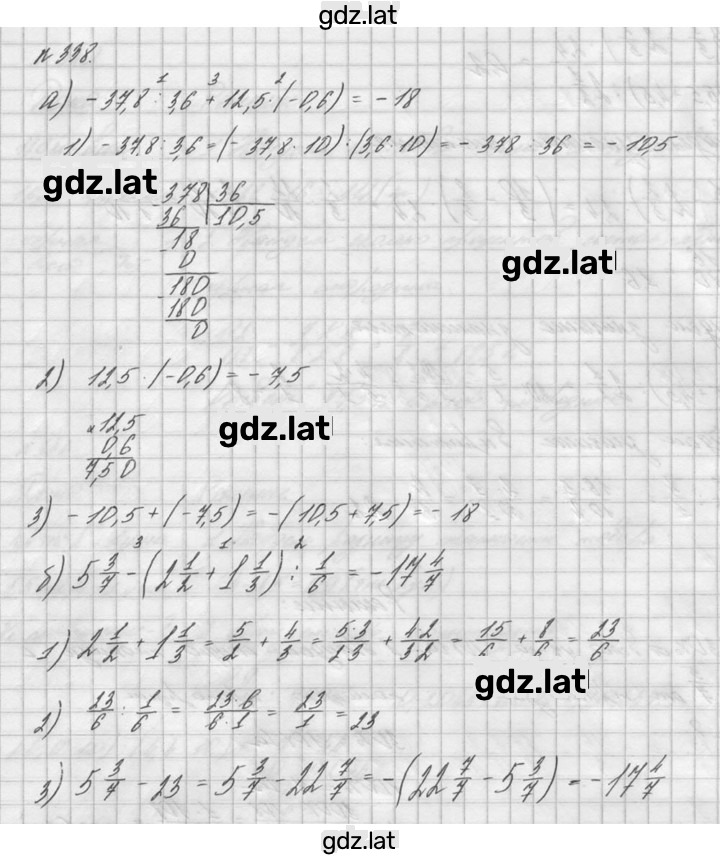 gdz.lat
№ 338.
а) - 37,8 : 3,6 + 12,5 · (-0,6) = - 18
1 3 2
1) - 37,8 : 3,6 = (- 37,8 · 10) : (3,6 · 10) = - 378 : 36 = - 10,5
gdz.lat
- 378 | 36
36 | 10,5
- 18
0
gdz.lat
- 180
180
0
2) 12,5 · (-0,6) = - 7,5
× 12,5
gdz.lat
0,6
7,50
3) - 10,5 + (- 7,5) = - (10,5 + 7,5) = - 18
3 1 2
б) 5 3/7 - (2 1/2 + 1 1/3) : 1/6 = - 17 4/7
1) 2 1/2 + 1 1/3 = 5/2 + 4/3 = 5·3/2·3 + 4·2/3·2 = 15/6 + 8/6 = 23/6
gdz.lat
2) 23/6 : 1/6 = 23·6/6·1 = 23/1 = 23
3) 5 3/7 - 23 = 5 3/7 - 22 7/7 = - (22 7/7 - 5 3/7) = - 17 4/7
gdz.lat